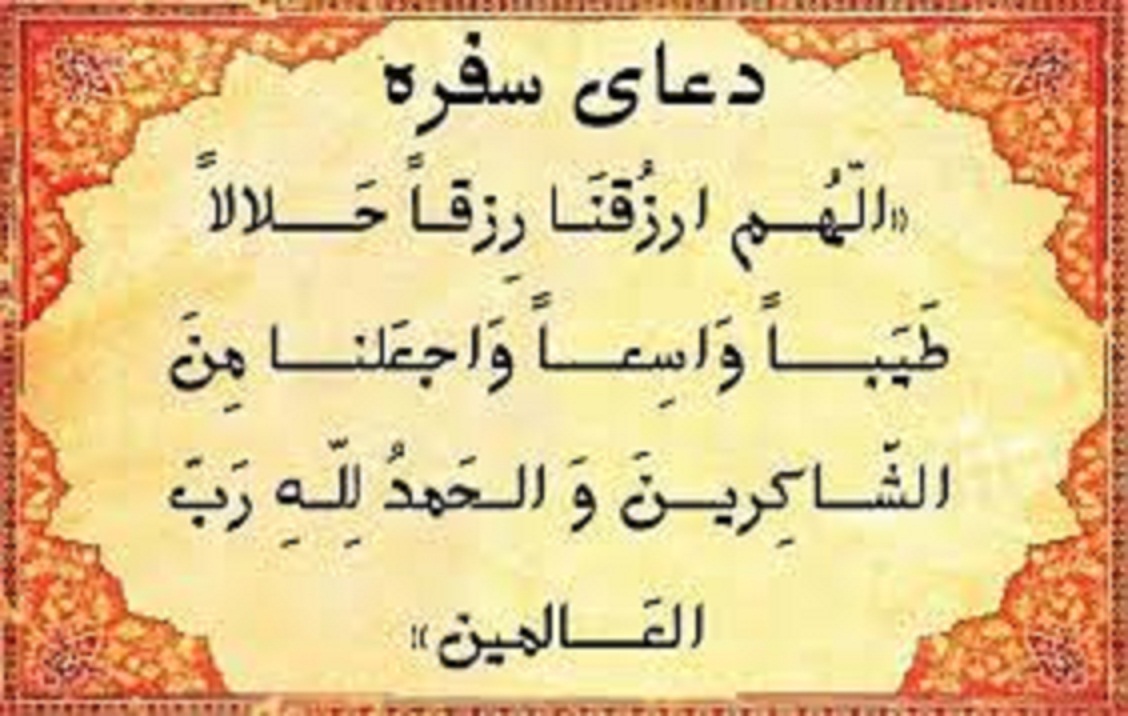 دعای سفره
«الّهُم ارزُقنَا رِزقاً حَلالاً
طَیَباً وَاسِعاً وَاجعَلنا مِنَ
الشّاکِرینَ وَ الحَمدُ لِلّهِ رَبَ
العَالمین»